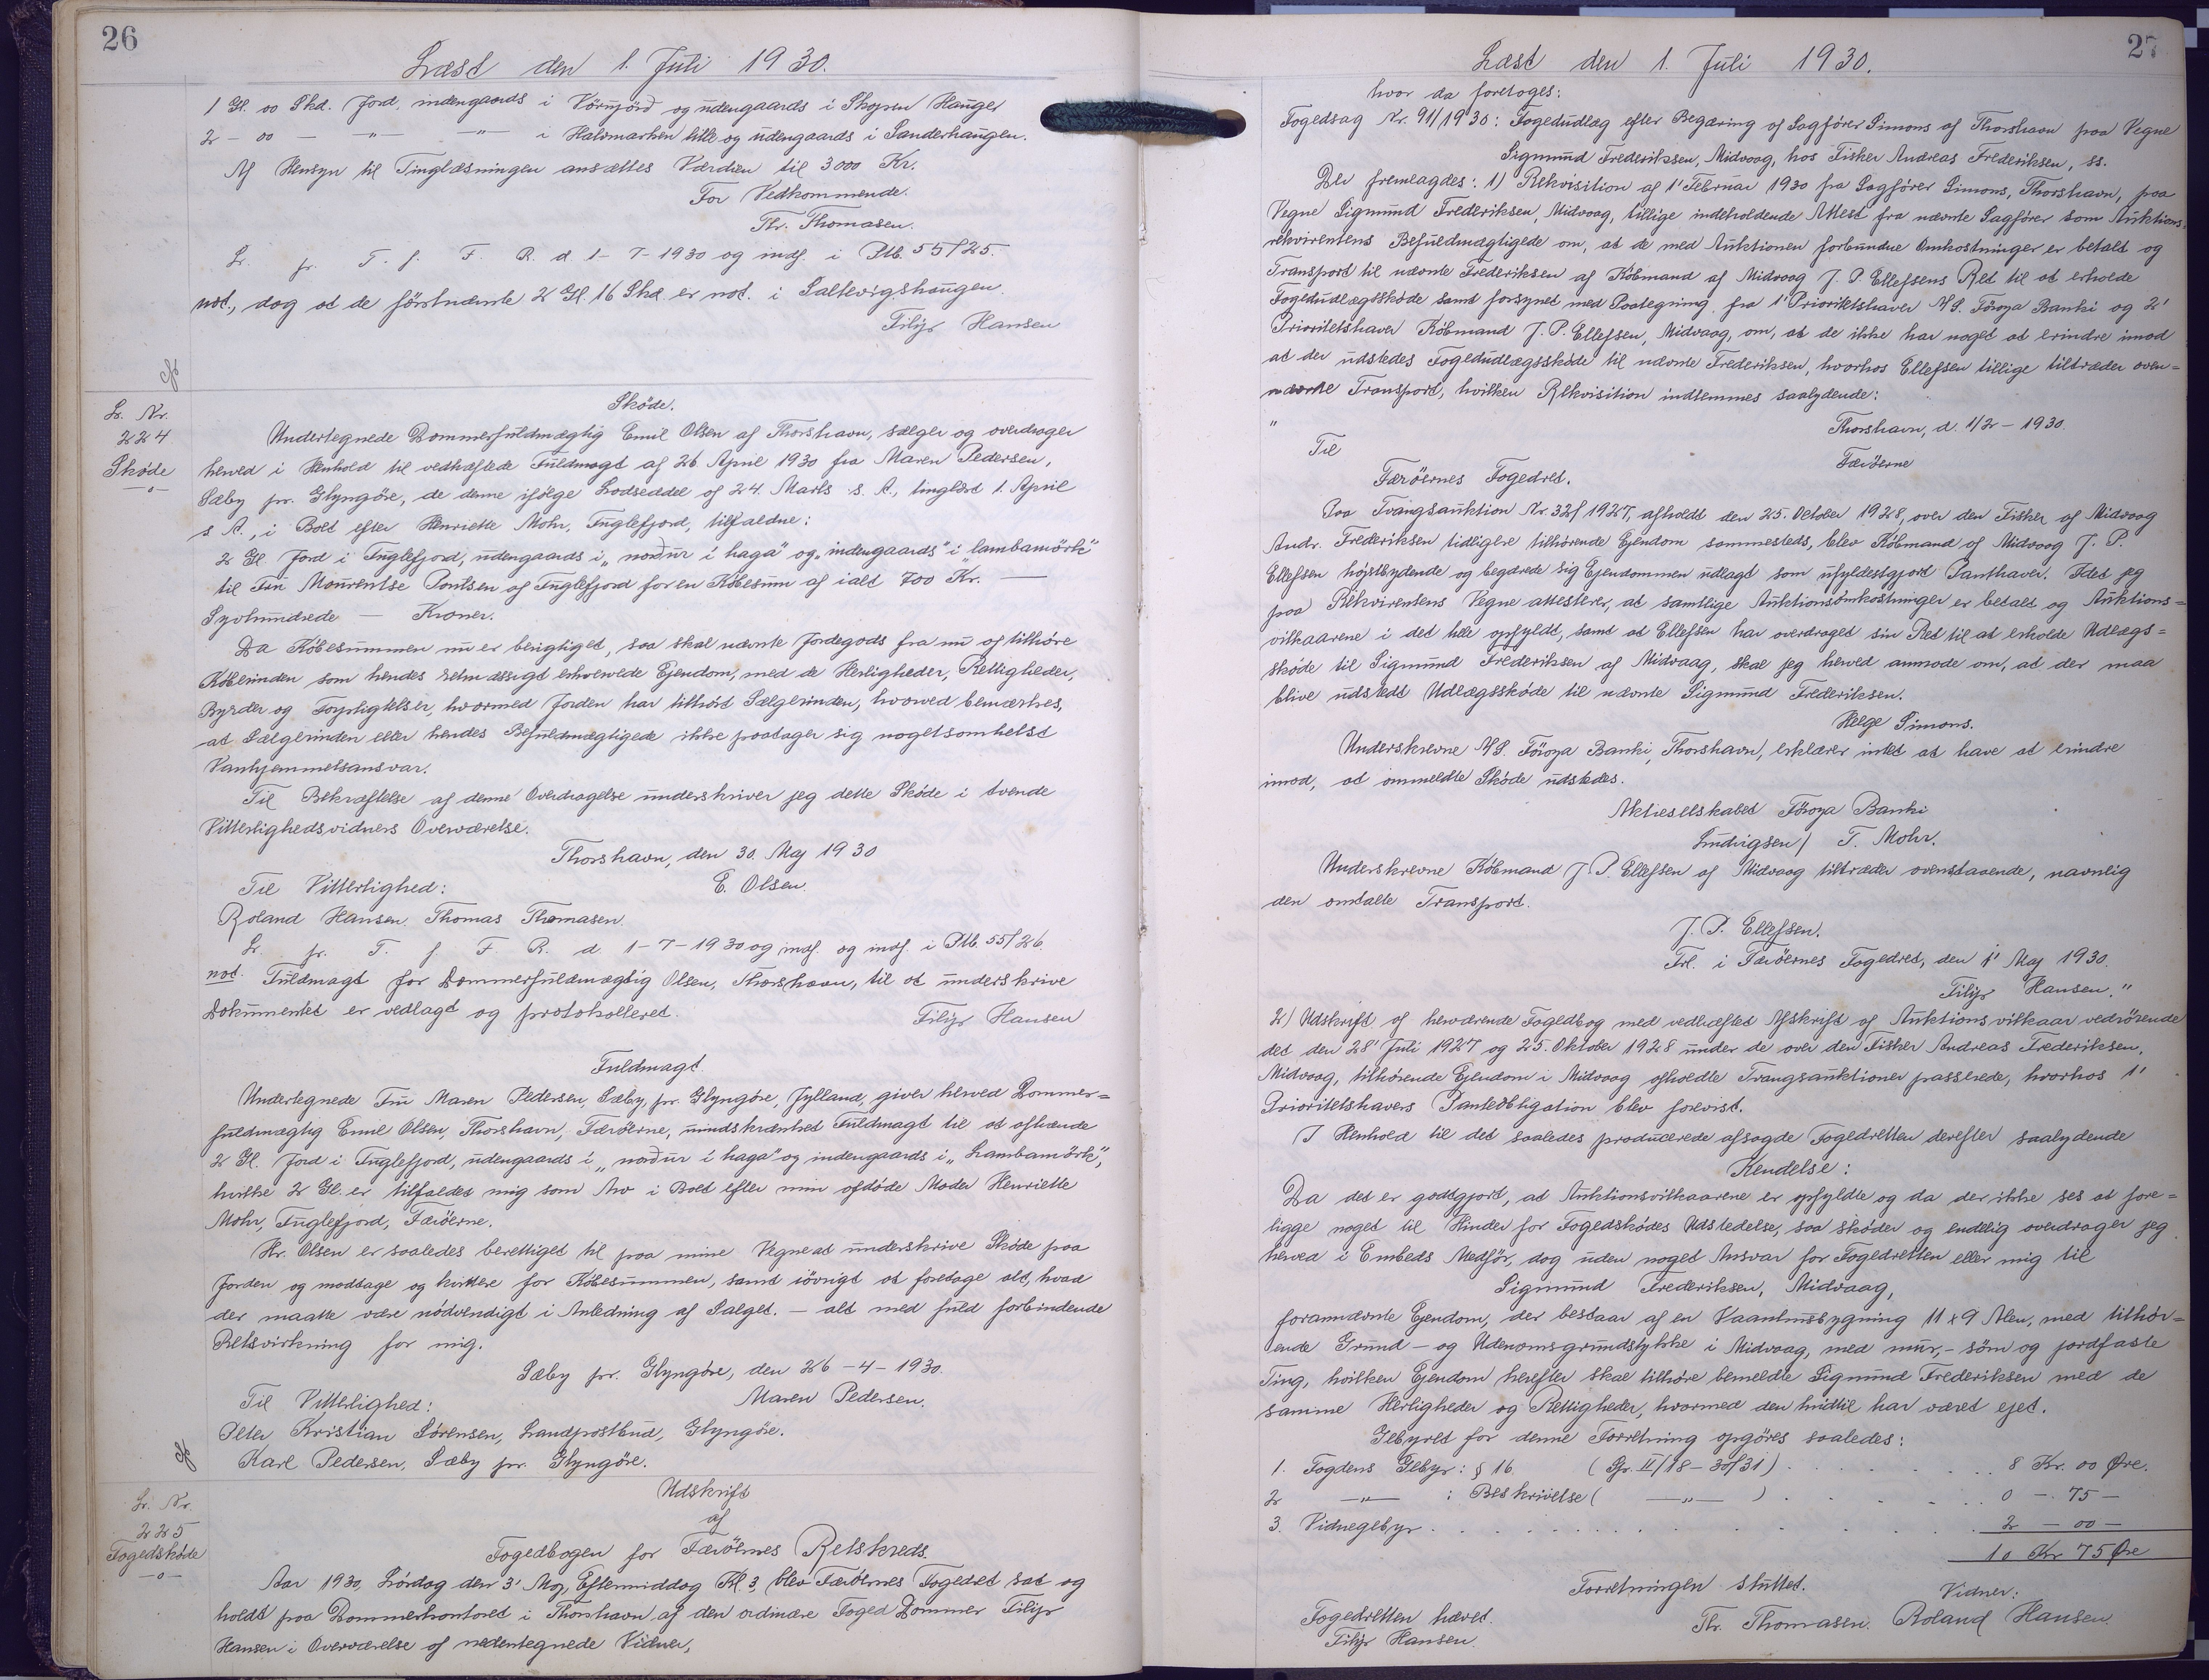 26
Læst den 1. Juli 1930.
1 Gl. 00 Skd. Jord, indengaards i Vörnjörd og udengaards i Skopun Hauger
2 - 00 - -"- -"- i Halvmarken lille og udengaards i Sanderhaugen.
Af Hensyn til Tinglæsningen ansættes Værdien til 3000 Kr.
For Vedkommende.
Th. Thomasen.
L. pr. T. f. F. R. d. 1-7-1930 og indf. i Ptb. 55/25.
not., dog at de förstnævnte 2 Gl. 16 Skd. er not. i Saltevigshaugen.
Filip Hansen
L. Nr.
224
Skøde
-o-
Skøde.
Undertegnede Dommerfuldmægtig Emil Olsen af Thorshavn, sælger og overdrager
herved i Henhold til vedhæftede Fuldmagt af 26 April 1930 fra Maren Pedersen,
Sæby pr. Glyngöre, de denne ifölge Lodseddel af 24. Marts s. A., tinglæst 1. April
s. A., i Boet efter Henriette Mohr, Fuglefjord, tilfaldne:
2 Gl. Jord i Fuglefjord, udengaards i „norður í haga" og „indengaards" i „lambamörk"
til Fru Mourentse Poulsen af Fuglefjord for en Købesum af ialt 700 Kr. —
Syvhundrede — Kroner.
Da Købesummen nu er berigtiget, saa skal nævnte Jordegods fra nu af tilhøre
Køberinden som hendes retmæssigt erhvervede Ejendom, med de Herligheder, Rettigheder,
Byrder og Forpligtelser, hvormed Jorden har tilhørt Sælgerinden, hvorved bemærkes,
at Sælgerinden eller hendes Befuldmægtigede ikke paatager sig nogetsomhelst
Vanhjemmelsansvar.
Til Bekræftelse af denne Overdragelse underskriver jeg dette Skøde i tvende
Vitterlighedsvidners Overværelse.
Thorshavn, den 30. Maj 1930
Til Vitterlighed: E. Olsen.
Roland Hansen. Thomas Thomasen.
L. pr. T. f. F. R. d. 1-7-1930 og indf. og indf. i Ptb. 55/26.
not. Fuldmagt for Dommerfuldmægtig Olsen, Thorshavn, til at underskrive
Dokumentet er vedlagt og protokolleret.
Filip Hansen
Fuldmagt.
Undertegnede Fru Maren Pedersen, Sæby, pr. Glyngøre, Jylland, giver herved Dommer=
fuldmægtig Emil Olsen, Thorshavn, Færöerne, uindskrænket Fuldmagt til at afhænde
2 Gl. Jord i Fuglefjord, udengaards i „norður í haga" og indengaards i „Lambamörk",
hvilke 2 Gl. er tilfaldet mig som Arv i Boet efter min afdøde Moder Henriette
Mohr, Fuglefjord, Færöerne.
Hr. Olsen er saaledes berettiget til paa mine Vegne at underskrive Skøde paa
Jorden og modtage og kvittere for Købesummen, samt iövrigt at foretage alt, hvad
der maatte være nödvendigt i Anledning af Salget. — alt med fuld forbindende
Retsvirkning for mig.
Sæby pr. Glyngöre, den 26-4-1930.
Til Vitterlighed: Maren Pedersen.
Peter Kristian Sörensen, Landpostbud, Glyngöre.
Karl Pedersen, Sæby pr. Glyngöre.
L. Nr.
225
Fogedskøde
-o-
Udskrift
af
Fogedbogen for Færöernes Retskreds.
Aar 1930, Lördag den 3' Maj, Eftermiddag Kl. 3, blev Færöernes Fogedret sat og
holdt paa Dommerkontoret i Thorshavn af den ordinære Foged Dommer Filip
Hansen i Overværelse af nedentegnede Vidner,
27
Læst den 1. Juli 1930.
hvor da foretoges:
Fogedsag Nr. 91/1930: Fogedudlæg efter Begæring af Sagförer Simons af Thorshavn paa Vegne
Sigmund Frederiksen, Midvaag, hos Fisker Andreas Frederiksen, ss.
Der fremlagdes: 1) Rekvisition af 1' Februar 1930 fra Sagförer Simons, Thorshavn, paa
Vegne Sigmund Frederiksen, Midvaag, tillige indeholdende Attest fra nævnte Sagförer som Auktions
rekvirentens Befuldmægtigede om, at de med Auktionen forbundne Omkostninger er betalt og
Transport til nævnte Frederiksen af Købmand af Midvaag J. P. Ellefsens Ret til at erholde
Fogedudlægsskøde samt forsynet med Paategning fra 1' Prioritetshaver A/S. Föroya Banki og 2'
Prioritetshaver Købmand J. P. Ellefsen, Midvaag, om, at de ikke har noget at erindre imod
at der udstedes Fogedudlægsskøde til nævnte Frederiksen, hvorhos Ellefsen tillige tiltræder oven=
nævnte Transport, hvilken Rekvisition indlemmes saalydende:
" Thorshavn, d. 1/2 - 1930.
Til Færöerne
Færöernes Fogedret.
Paa Tvangsauktion Nr. 32/1927, afholdt den 25. October 1928, over den Fisker af Midvaag
Andr. Frederiksen tidligere tilhörende Ejendom sammesteds, blev Købmand af Midvaag J. P.
Ellefsen höjstbydende og begærede sig Ejendommen udlagt som ufyldestgjort Panthaver. Idet jeg
paa Rekvirentens Vegne attesterer, at samtlige Auktionsomkostninger er betalt og Auktions=
vilkaarene i det hele opfyldt, samt at Ellefsen har overdraget sin Ret til at erholde Udlægs=
skøde til Sigmund Frederiksen af Midvaag, skal jeg herved anmode om, at der maa
blive udstedt Udlægsskøde til nævnte Sigmund Frederiksen.
Helge Simons.
Underskrevne A/S. Föroya Banki, Thorshavn, erklærer intet at have at erindre
imod, at ommeldte Skøde udstedes.
Aktieselskabet Föroya Banki
Ludvigsen / T. Mohr.
Underskrevne Købmand J. P. Ellefsen af Midvaag tiltræder ovenstaaende, navnlig
den omtalte Transport.
J. P. Ellefsen.
Frl. i Færöernes Fogedret, den 1' Maj 1930.
Filip Hansen."
2) Udskrift af herværende Fogedbog med vedhæftet Afskrift af Auktionsvilkaar vedrörende
det den 28' Juli 1927 og 25. Oktober 1928 under de over den Fisker Andreas Frederiksen,
Midvaag, tilhörende Ejendom i Midvaag afholdte Tvangsauktioner passerede, hvorhos 1'
Prioritetshavers Panteobligation blev forevist.
I Henhold til det saaledes producerede afsagde Fogedretten derefter saalydende
Kendelse:
Da det er godtgjort, at Auktionsvilkaarene er opfyldte og da der ikke ses at fore=
ligge noget til Hinder for Fogedskødes Udstedelse, saa skøder og endelig overdrager jeg
herved i Embeds Medför, dog uden noget Ansvar for Fogedretten eller mig til
Sigmund Frederiksen, Midvaag,
forannævnte Ejendom, der bestaar af en Vaaningsbygning 11 x 9 Alen, med tilhör=
ende Grund- og Udenomsgrundstykke i Midvaag, med mur,- söm og jordfaste
Ting, hvilken Ejendom herefter skal tilhöre bemeldte Sigmund Frederiksen med de
samme Herligheder og Rettigheder, hvormed den hidtil har været ejet.
Gebyret for denne Forretning opgöres saaledes:
1. Fogdens Gebyr: § 16. (Gr. II/18 - 30/31) . . . . 8 Kr. 00 Øre.
2 -"- : Beskrivelse ( -"- ) . . . . 0 - 75 -
3. Vidnegebyr . . . . 2 - 00 -
10 Kr 75 Øre
Forretningen sluttet.
Fogedretten hævet. Vidner:
Filip Hansen. Th. Thomasen. Roland Hansen